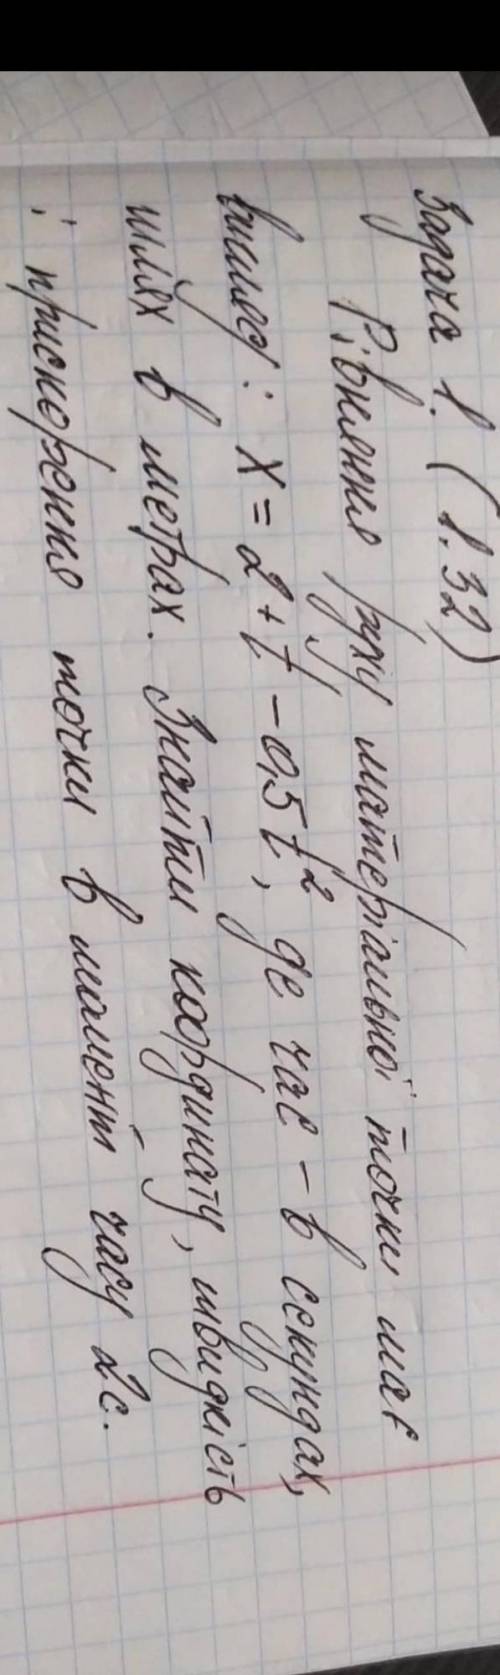 Задача 1. (1.32)
Рівняння руху матеріальної точки має
вигляд: x = 2 + t - 0,5t², де час - в секундах,
шлях в метрах. Знайти координату, швидкість
і прискорення точки в момент часу 2с.